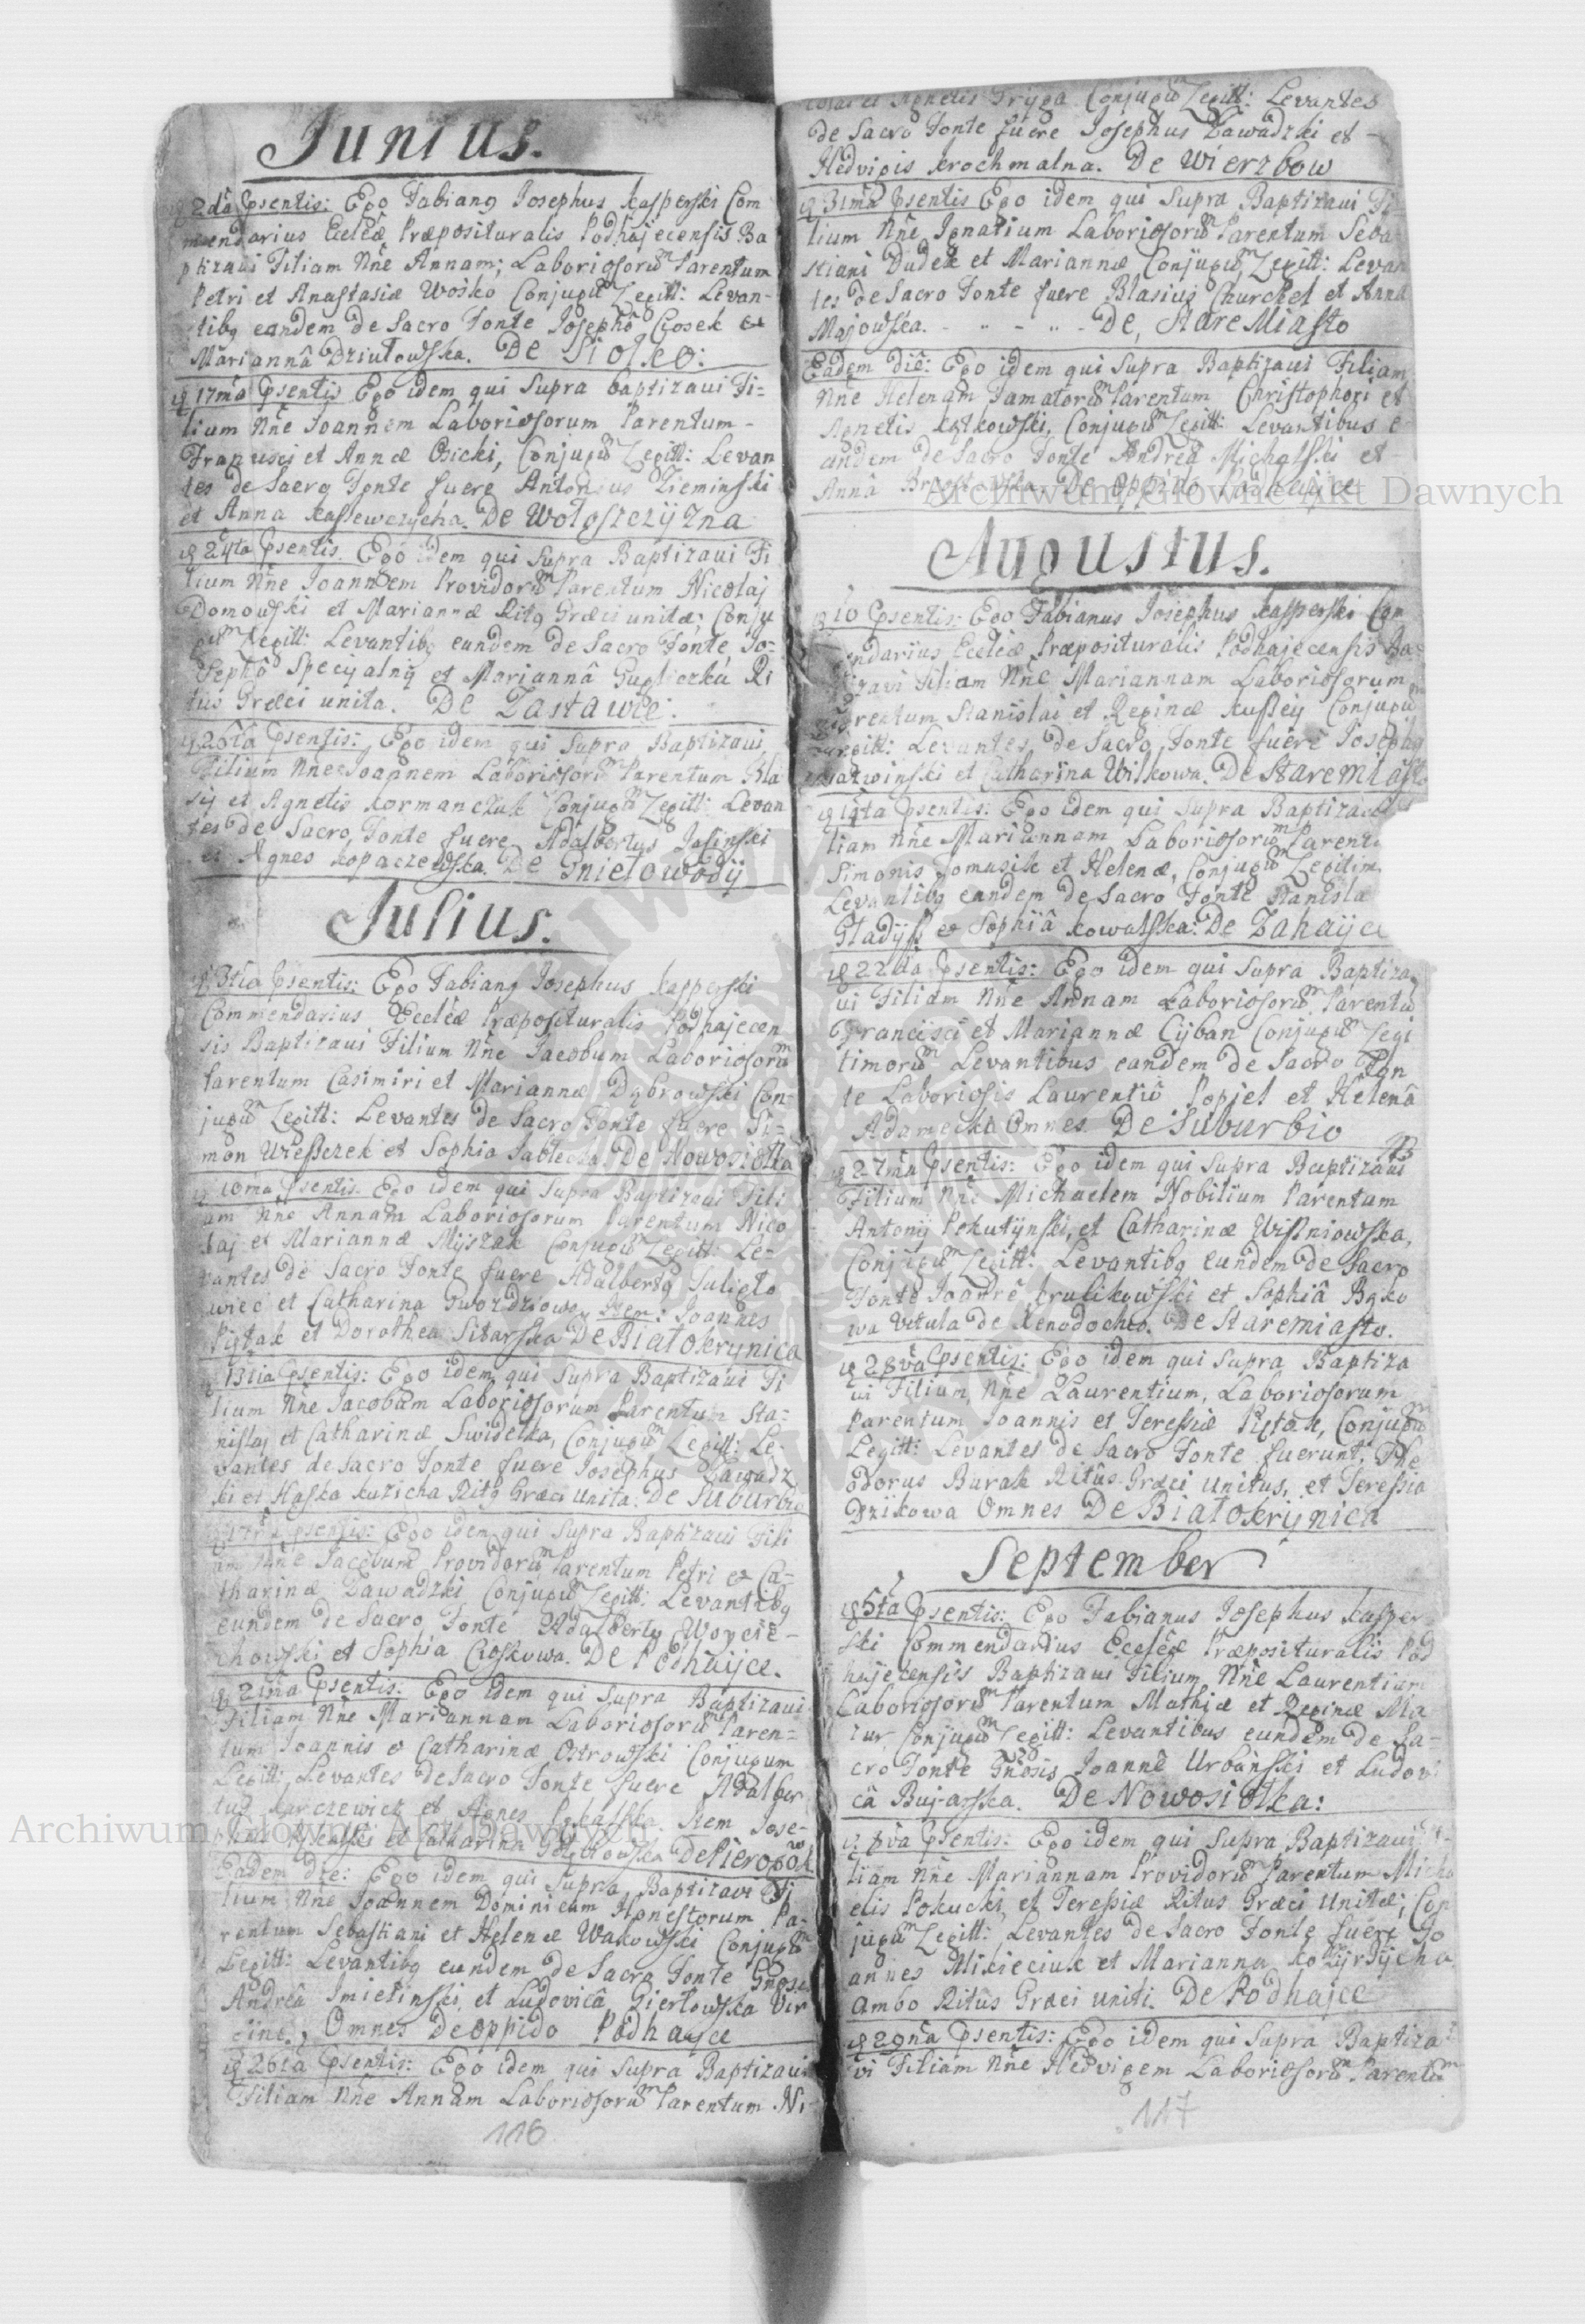 Junius.
2da Psentis: Ego Fabiang Josephus Kasperski Com
mendarius Eccleæ Præposituralis Podhajecensis Ba
ptizavi Filiam Nñe Annam; Laboriosorũm Parentum
Petri et Anastasiæ Wosko Conjugũm Legitt: Levan-
tibg eandem de Sacro Fonte Josephô Crosek et
Mariannâ Dziutowska. De Siolko:
17ma Psentis Ego idem qui Supra baptizavi Fi=
lium Nñe Joannem Laboriosorum Parentum-
Francisci et Annæ Osicki, Conjugũm Legitt: Levan
tes de Sacro Fonte fuere Antonius Zieminski
et Anna Kassewczycha. De Wotoszczyzna
24ta Psentis. Ego idem qui Supra Baptizavi Fi
lium Nñe Joannem Providorũm Parentum Nicolaj
Domowski et Mariannæ Ritg Græci unitæ; Conju
gũm Legitt: Levantibg eundem de Sacro Fonte Jo=
sephô Specyalny et Mariannâ Gugliczka Ri
tus Græci unita. De Zastawce.
26ta Psentis: Ego idem qui Supra Baptizavi
Filium Nñe Joannem Laboriosorũm Parentum Bla
sij et Agnetis Kormanczuk Conjugũm Legitt: Levan
tes de Sacro Fonte fuere Adalbertus Jasinski
et Agnes Kopaczewska. De Gnietowody
Julius.
3tia Psentis: Ego Fabiang Josephus Kasperski
Commendarius Eccleæ Præposituralis Podhajecen
sis Baptizavi Filium Nñe Jacobum Laboriosorũm
Parentum Casimiri et Mariannæ Dąbrowski Con-
jugũm Legitt: Levantes de Sacro Fonte fuere Si=
mon Wiesszek et Sophia Jabtecka De Nowosiotka
10ma Psentis. Ego idem qui Supra Baptizavi Fili
am Nñe Annam Laboriosorum Parentum Nico
laj et Mariannæ Myszak Conjugũm Legitt: Le-
vantes de Sacro Fonte fuere Adalbertg Sulisto
wiec et Catharina Gwozdziowa, Item: Joannes
Piętak et Dorothea Sitarska De Biatokrynica
13tia Psentis: Ego idem qui Supra Baptizavi Fi
lium Nñe Jacobum Laboriosorum Parentum Sta=
nislaj et Catharinæ Swidelka, Conjugũm Legitt: Le-
vantes de Sacro Fonte fuere Josephus Zawadz
ki et Haska Kuzicha Ritg Græci unita: De Suburbio
Psentis: Ego idem qui Supra Baptizavi Fili
um Nñe Jacobum Providorũm Parentum Petri et Ca=
tharinæ Zawadzki Conjugũm Legitt: Levantibg
eundem de Sacro Fonte Adalbertg Woycie-
chowski et Sophia Croskowa. De Podhayce.
21ma Psentis: Ego idem qui Supra Baptizavi
Filiam Nñe Mariannam Laboriosorũm Paren=
tum Joannis et Catharinæ Ostrowski Conjugum
Legitt: Levantes de Sacro Fonte fuere Adalber
tus Karczewicz et Agnes Rekalska. Item Jose-
phus et Catharina De Sieropôk
Eadem die: Ego idem qui Supra Baptizavi Fi
lium Nñe Joannem Dominicum Honestorum Pa-
rentum Sebastiani et Helenæ Wakowski Conjugũm
Legitt: Levantibg eundem de Sacro Fonte Gñosis
Andreâ Smietinski et Ludovicâ Giertowska Vir
gine. Omnes De oppido Podhayce
26ta Psentis: Ego idem qui Supra Baptizavi
Filiam Nñe Annam Laboriosorũm Parentum Ni-
116
colai et Agnetis Fryga Conjugũm Legitt: Levantes
de Sacro Fonte fuere Josephus Zawadzki et -
Hedvigis Krochmalna. De Wierzbow
31ma Psentis Ego idem qui Supra Baptizavi Fi=
lium Nñe Ignatium Laboriosorũm Parentum Seba
stiani Dudek et Mariannæ Conjugũm Legitt: Levan
tes de Sacro Fonte fuere Blasius Churchel et Anna
Majowska. De, Stare Miasto
Eadem diê: Ego idem qui Supra Baptizavi Filiam
Nñe Helenam Famatorũm Parentum Christophori et
Agnetis Kątkowski, Conjugũm Legitt: Levantibus e
andem de Sacro Fonte Andreâ Michalski et
Annâ De oppido Podhayce
Augustus.
10 Psentis: Ego Fabianus Josephus Kasperski Com
endarius Eccleæ Præposituralis Podhajecensis Ba=
tizavi Filiam Nñe Mariannam Laboriosorum
Parentum Stanislai et Reginæ Kussey Conjugũm
Legitt: Levantes de Sacro Fonte fuere Josephg
et Catharina Wilkowa. De Staremiasto
14ta Psentis: Ego idem qui Supra Baptizavi
liam Nñe Mariannam Laboriosorũm Parent
Simonis Jomasik et Helenæ, Conjugũm Legitim
Levantibg eandem de Sacro Fonte Stanisla
Gtadyss et Sophiâ Kowalska: De Zahayce
22da Psentis: Ego idem qui Supra Baptiza
vi Filiam Nñe Annam Laboriosorũm Parentũ
Francisci et Mariannæ Cyban Conjugũm Legi
timorũm Levantibus eandem de Sacro Fon
te Laboriosis Laurentiô Popjel et Helenâ
Adamecka Omnes De Suburbio
27ma Psentis: Ego idem qui Supra Baptizavi
Filium Nñe Michaelem Nobilium Parentum
Antonij Pekutynski, et Catharinæ Wisniowska,
Conjugũm Legitt: Levantibg eundem de Sacro
Fonte Joannê Krulikowski et Sophiâ Bąko
wa Vetula de Xenodochio. De Staremiasto.
28va Psentis: Ego idem qui Supra Baptiza
vi Filium Nñe Laurentium, Laboriosorum
Parentum Joannis et Teressiæ Piętak, Conjugũm
Legitt: Levantes de Sacro Fonte fuerunt, The
odorus Burak Ritûs Græci Unitus, et Teressia
Dzikowa Omnes De Biatokrynica
September
5ta Psentis: Ego Fabianus Josephus Kasper
ski Commendarius Eccleæ Præposituralis Pod
hajecensis Baptizavi Filium Nñe Laurentium
Laboriosorũm Parentum Mathiæ et Reginæ Ma
zur Conjugũm Legitt: Levantibus eundem de Sa=
cro Fonte Gñosis Joannê Urbanski et Ludovi
câ Bujarska. De Nowosiotka:
8va Psentis: Ego idem qui Supra Baptizavi Fi-
liam Nñe Mariannam Providorũm Parentum Micha
elis Pokucki, et Teressiæ Ritus Græci Unitæ; Con
jugũm Legitt: Levantes de Sacro Fonte fuere Jo
annes Mikieciuk et Marianna Kozyrsycha
ambo Ritûs Græci uniti. De Podhajce
29na Psentis: Ego idem qui Supra Baptiza
vi Filiam Nñe Hedvigem Laboriosorũm Parentũm
117
Archiwum Główne Akt Dawnych
Archiwum Główne Akt Dawnych